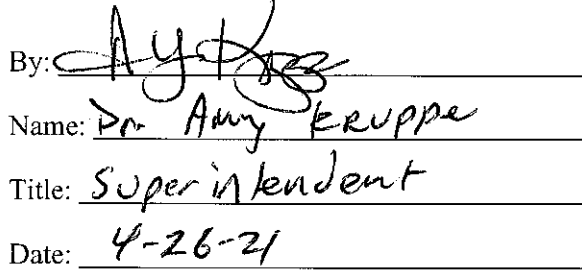 By:
Name: Dr. Amy Kruppe
Title: Superintendent
Date: 4-26-21